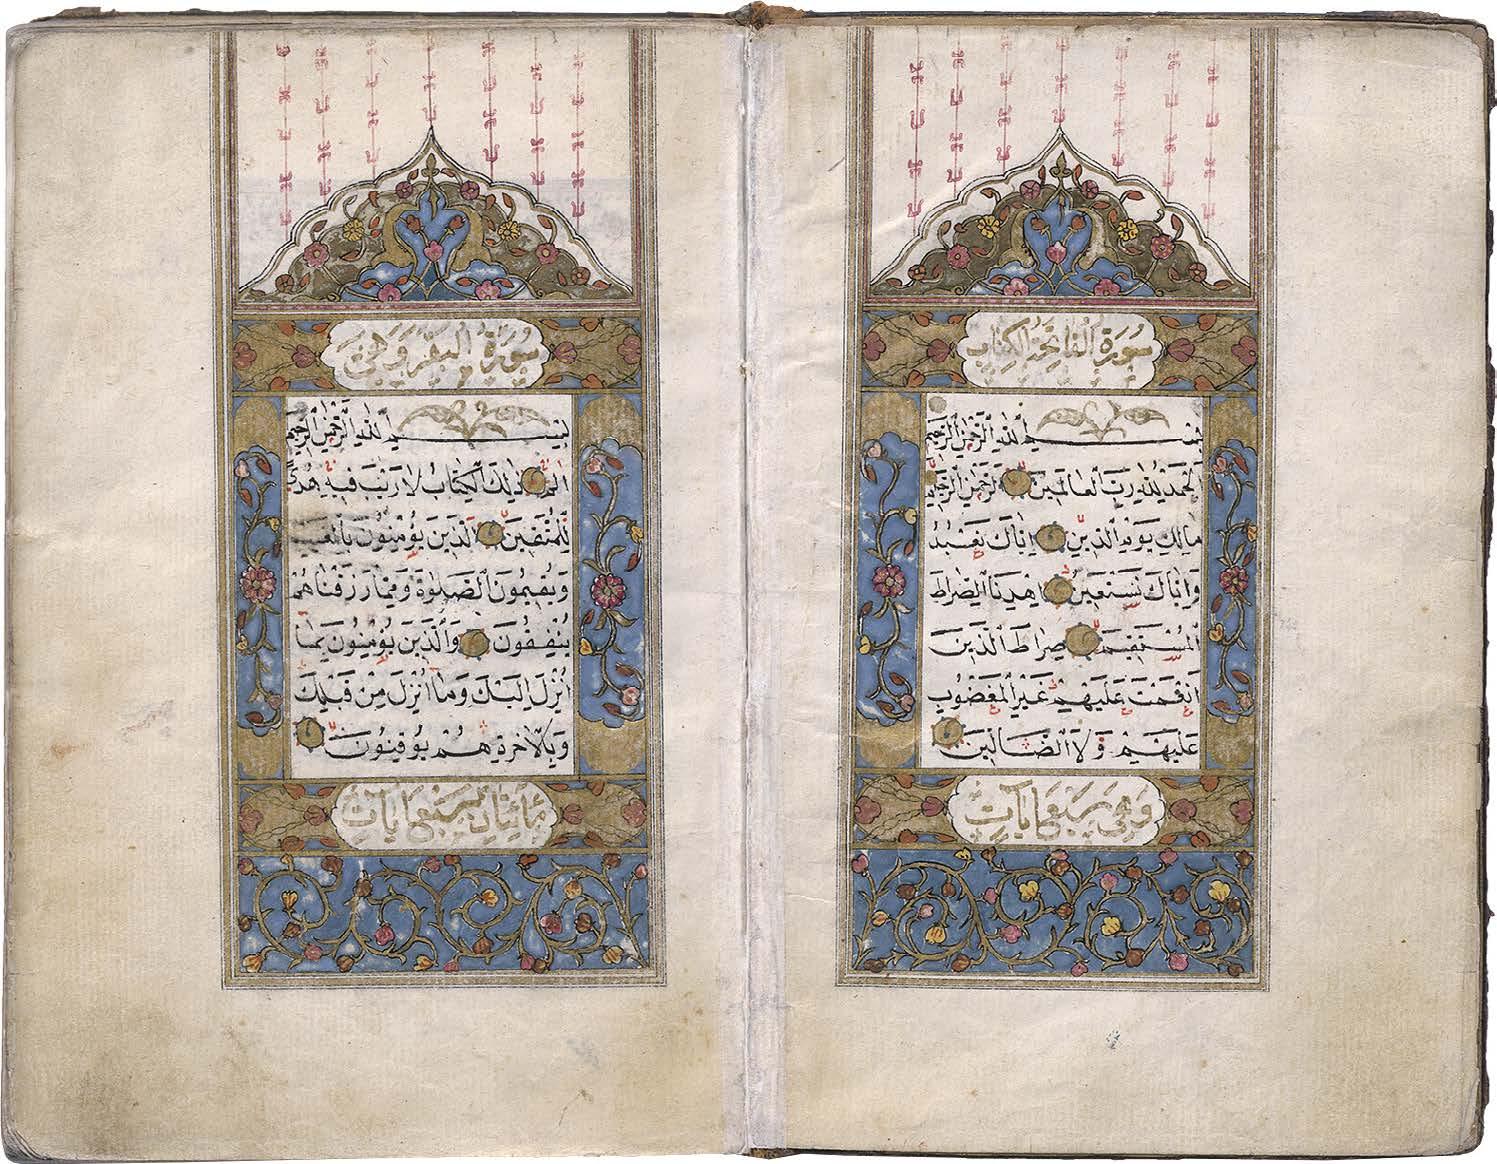 سورة الفاتحة الكتاب
بسم الله الرحمن الرحيم
الحمد لله رب العالمين الرحمن الرحيم
مالك يوم الدين اياك نعبد
واياك نستعين اهدنا الصراط
المستقيم صراط الذين
انعمت عليهم غير المغضوب
عليهم ولا الضالين
وهي سبع ايات
سورة البقرة وهي
بسم الله الرحمن الرحيم
الم ذلك الكتاب لا ريب فيه هدى
للمتقين الذين يؤمنون بالغيب
ويقيمون الصلوة ومما رزقناهم
ينفقون والذين يؤمنون بما
انزل اليك وما انزل من قبلك
وبالاخرة هم يوقنون
مائتان سبع ايات